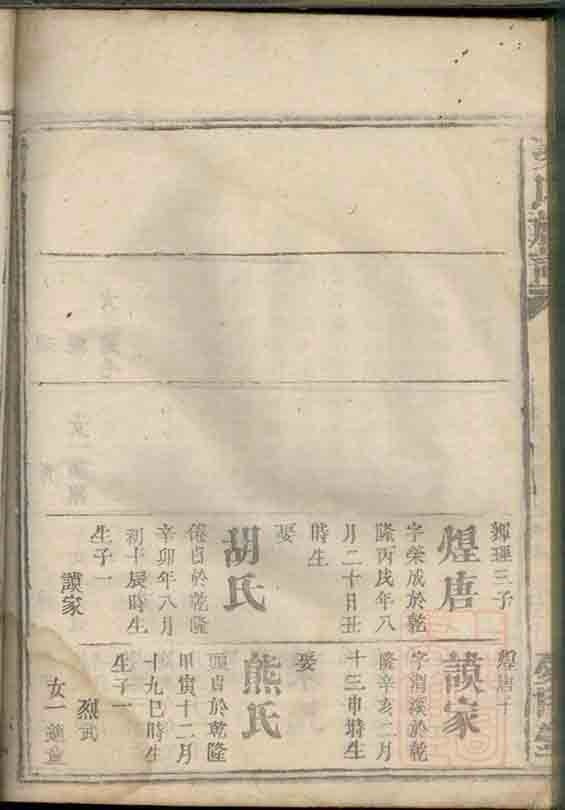 氏族譜
煇理三子
煌唐
字榮成於乾
隆丙戌年八
月二十日丑
時生
娶
胡氏
於乾隆
辛卯年八月
初十辰時生
生子一
讃家
煌唐子
讃家
字潤溪於乾
隆辛亥二月
十三申時生
娶
熊氏
於乾隆
甲寅十二月
十九巳時生
生子一
烈武
女一